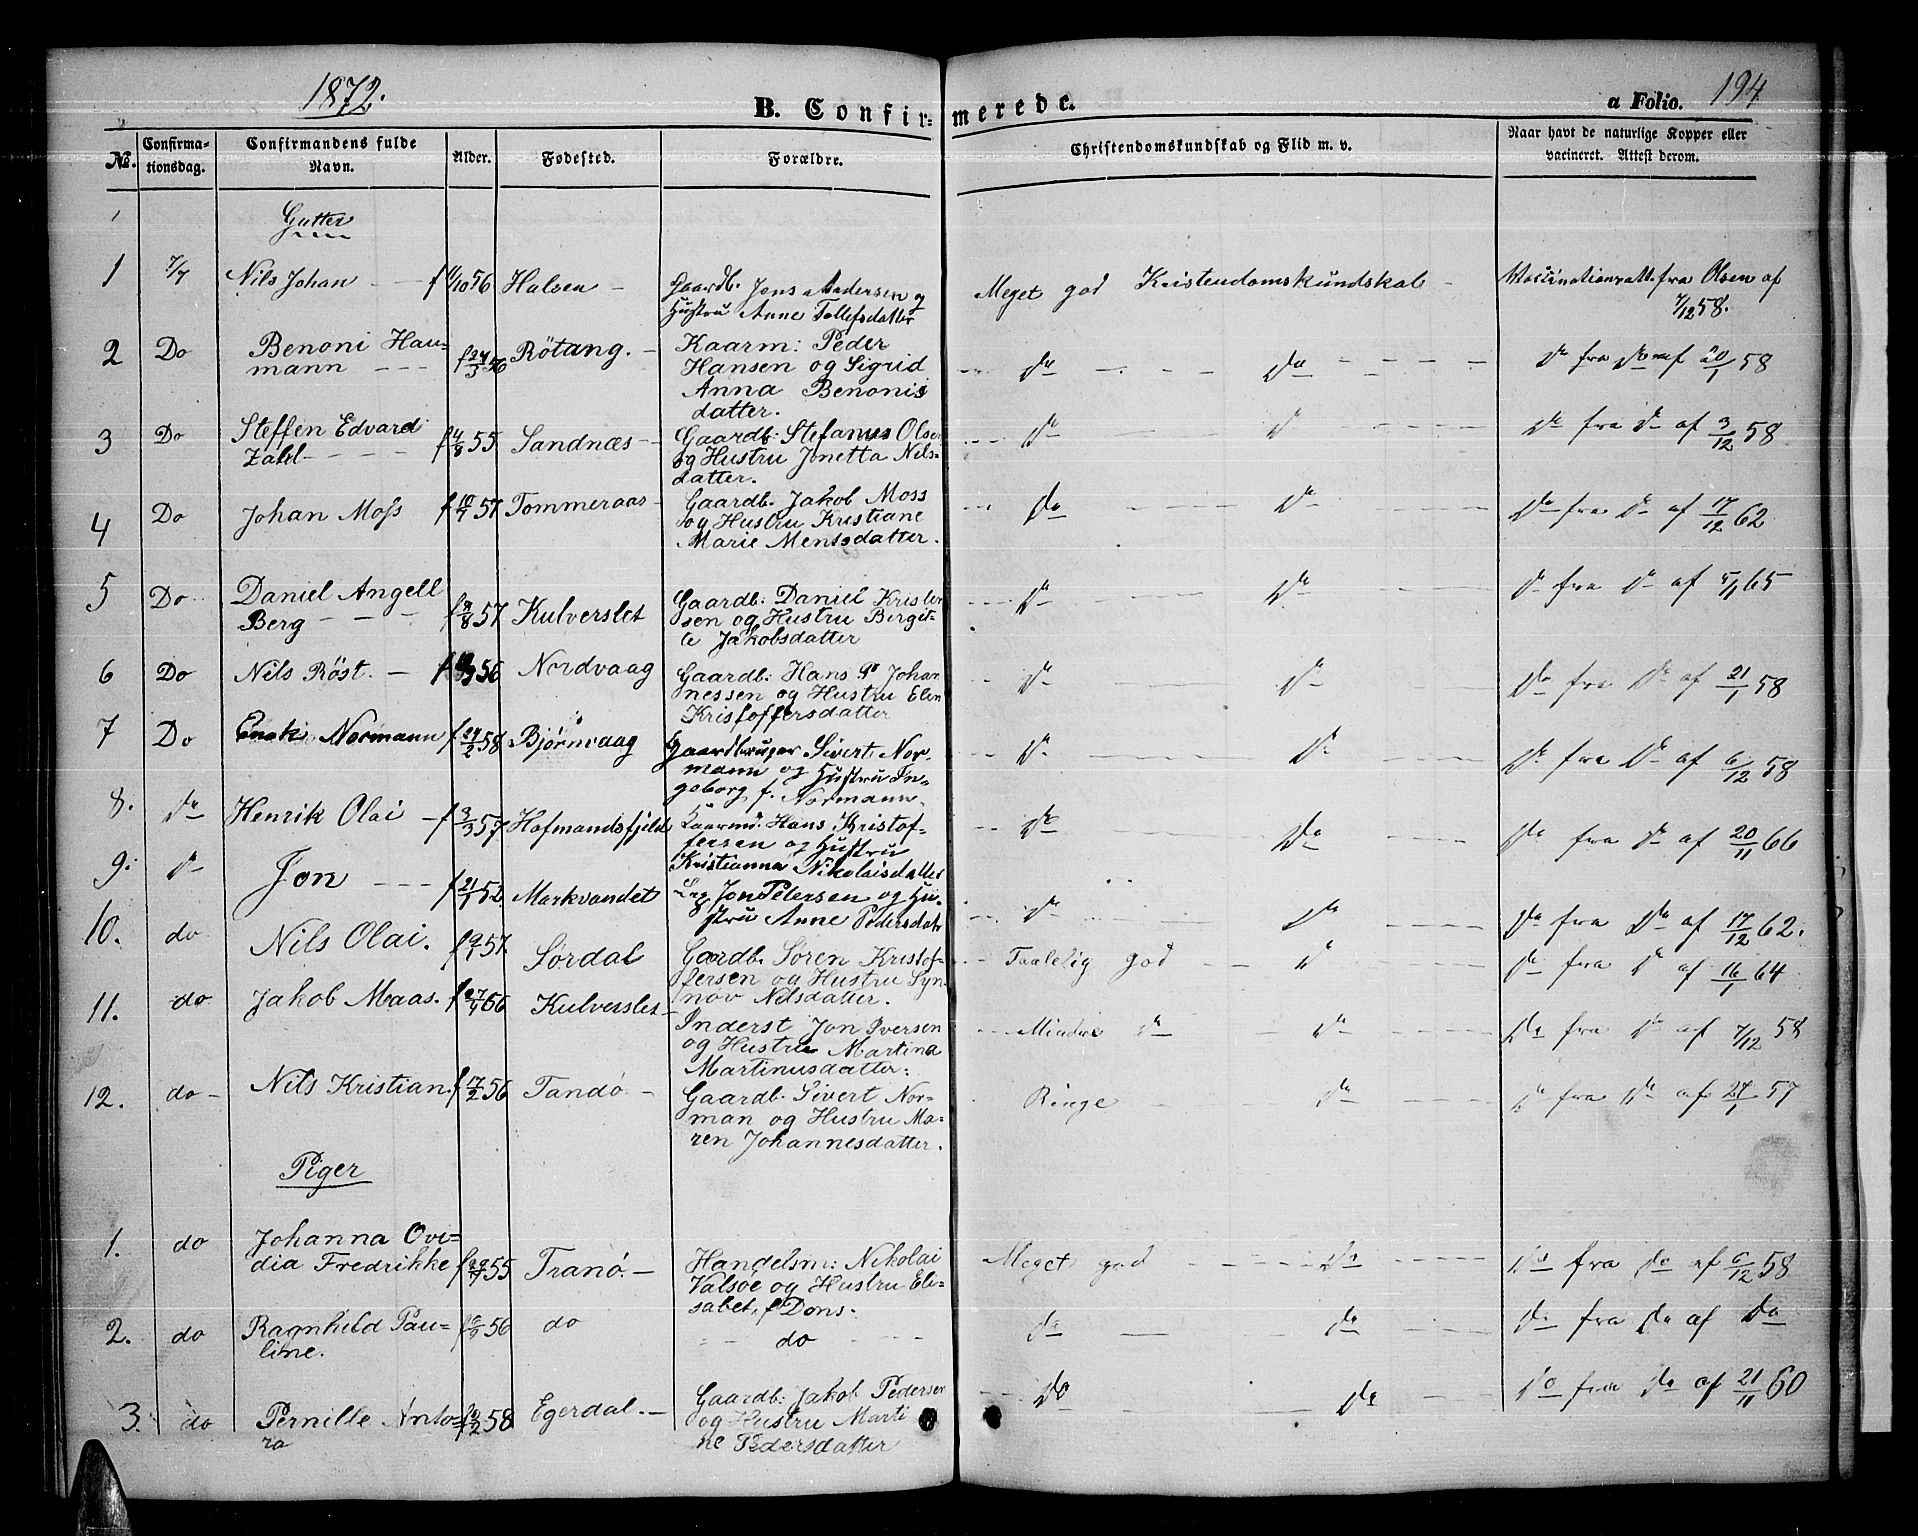 1872.
B. Confirmerede.
a Folio. 194
No. Confirmationsdag. Confirmandens fulde Navn. Alder. Fødested. Forældre. Christendomskundskab og Flid m. v. Naar havt de naturlige Kopper eller vacineret. Attest derom.
Gutter
1 7/7 Nils Johan - - f 11/10 56 Halsen - Gaardb. Jens Andersen og
Hustru Anne Tollefsdatter
Meget god Kristendomskundskab - Vaccinationsatt. fra Olsen af
7/12 58.
2 Do Benoni Hau=
mann - - - f 24/3 56 Røtang. - Kaarm: Peder
Hansen og Sigrid
Anna Benonis
datter.
Do Do Do fra Do af 20/1 58
3 Do Steffen Edvard
Zahl - - - - f 4/8 55 Sandnæs - Gaardb: Stefanus Olsen
og Hustru Jonetta Nils-
datter.
Do D Do fra Do af 3/12 58
4 Do Johan Moss f 10/7 57 Tommeraas - Gaardb. Jakob Moss
og Hustru Kristiane
Marie Mentsdatter.
Do Do Do fra Do af 17/12 62
5 Do Daniel Angell
Berg - - - f 9/8 57 Kulverslet Gaardb: Daniel Krister
sen og Hustru Bergit-
te Jakobsdatter
Do Do Do fra Do af 5/1 65
6 Do Nils Röst. - f 56 Nordvaag Gaardb: Hans P. Johan
nessen og Hustru Elen
Kristoffersdatter
Do Do Do fra Do af 21/1 58
7 Do Enok Normann f 24/2 58 Bjørnvaag Gaardbruger Sivert Nor-
mann og Hustru In-
geborg f. Normann.
Do Do Do fra Do af 6/12 58
8. Do Henrik Olai - f 3/3 57 Hofmandsfjeld Kaarmd. Hans Kristof-
fersen og Hustru
Kristianna Nikolaisdatter
Do Do Do fra Do af 20/11 66
9. Do Jon - - - f 21/1 52. Markvandet Lap Jon Petersen og Hu-
stru Anne Pedersdatr
Do Do Do fra Do af 17/12 62.
10. do Nils Olai. f 9/1 57. Sørdal Gaardb. Sören Kristof-
fersen og Hustru Syn-
növ Nilsdatter.
Taalelig god - - D Do fra D af 16/1 64
11. do Jakob Maas. f 27/4 56 Kulverslet - Inderst Jon Iversen
og Hustru Martina
Martinusdatter:
Mindre do - Do Do fra Do af 7/12 58
12. do - Nils Kristian. f 17/2 56 Tandö - Gaardb. Sivert Nor-
man og Hustru Ma-
ren Johannesdatter.
Ringe - Do Do fra Do af 27/1 57
Piger
1. do Johanna Ovi-
dia Fredrikke f 55 Tranö. - Handelsm: Nikolai
Valsöe og Hustru Eli-
sabet, f Dons.
Meget god Do Do fra do af 6/12 58
2. do Ragnhild Pau=
line. f 56 do do
do do Do fra Do af Do
3. do Pernille Anto=
ra f 58 Egerdal. - Gaardb: Jakob Pedersen
og Hustru Marti
ne Pedersdatter
Do Do Do fra Do af 21/11 60